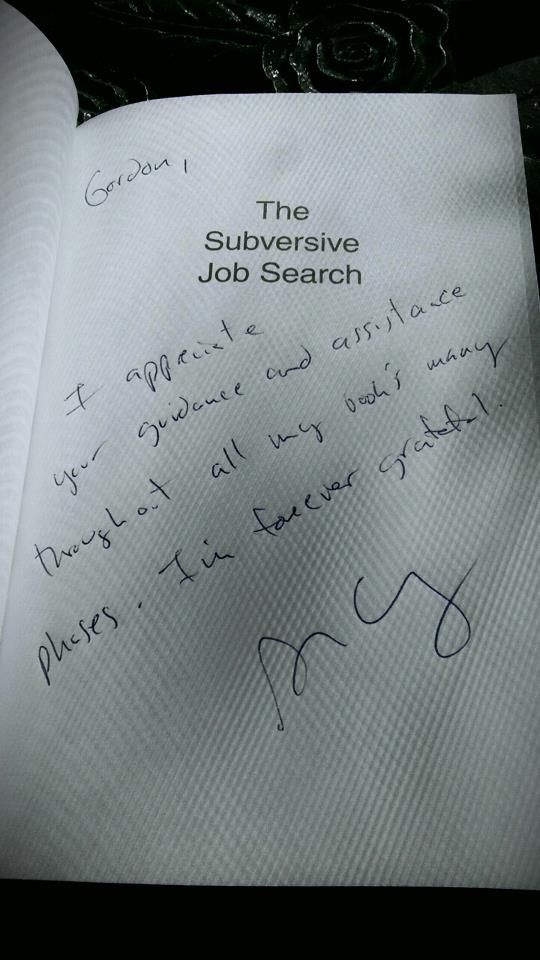 Gordon,
The
Subversive
Job Search
I appreciate
your guidance and assistance
throughout all my book's many
phases. I'm forever grateful.